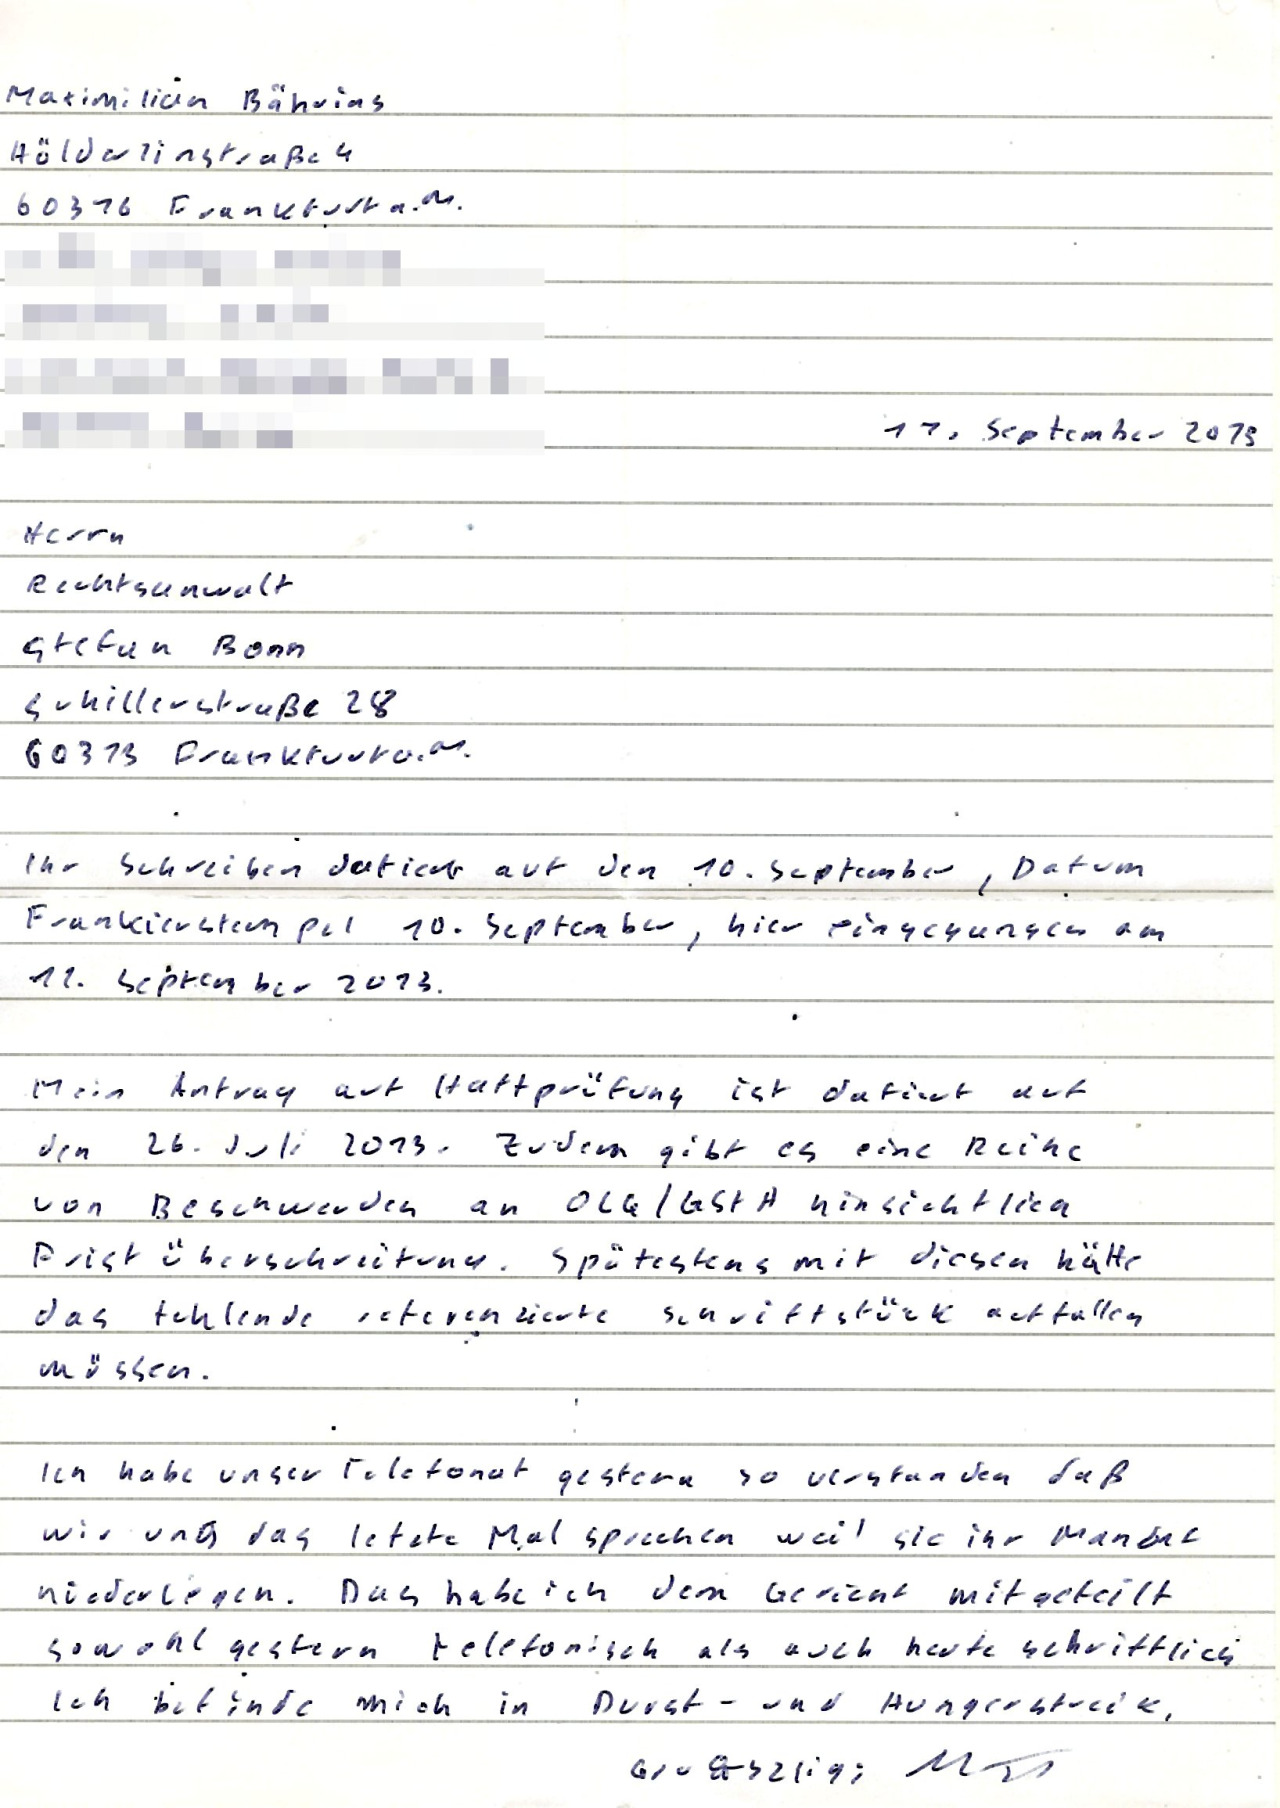 Maximilian Bähring
Hölderlinstraße 4
60316 Frankfurt a.M.
11. September 2013
Herrn
Rechtsanwalt
Stefan Bonn
Schillerstraße 28
60313 Frankfurt a.M.
Ihr Schreiben datiert auf den 10. September, Datum
Frankierstempel 10. September, hier eingegangen am
11. September 2013.
Mein Antrag auf Haftprüfung ist datiert auf
den 26. Juli 2013. Zudem gibt es eine Reihe
von Beschwerden an OLG/GStA hinsichtlich
Fristüberschreitung. Spätestens mit diesen hätte
das fehlende referenzierte Schriftstück auffallen
müssen.
Ich habe unser Telefonat gestern so verstanden daß
wir uns das letzte Mal sprechen weil sie ihr Mandat
niederlegen. Das habe ich dem Gericht mitgeteilt
sowohl gestern telefonisch als auch heute schriftlich
Ich befinde mich in Durst- und Hungerstreik.